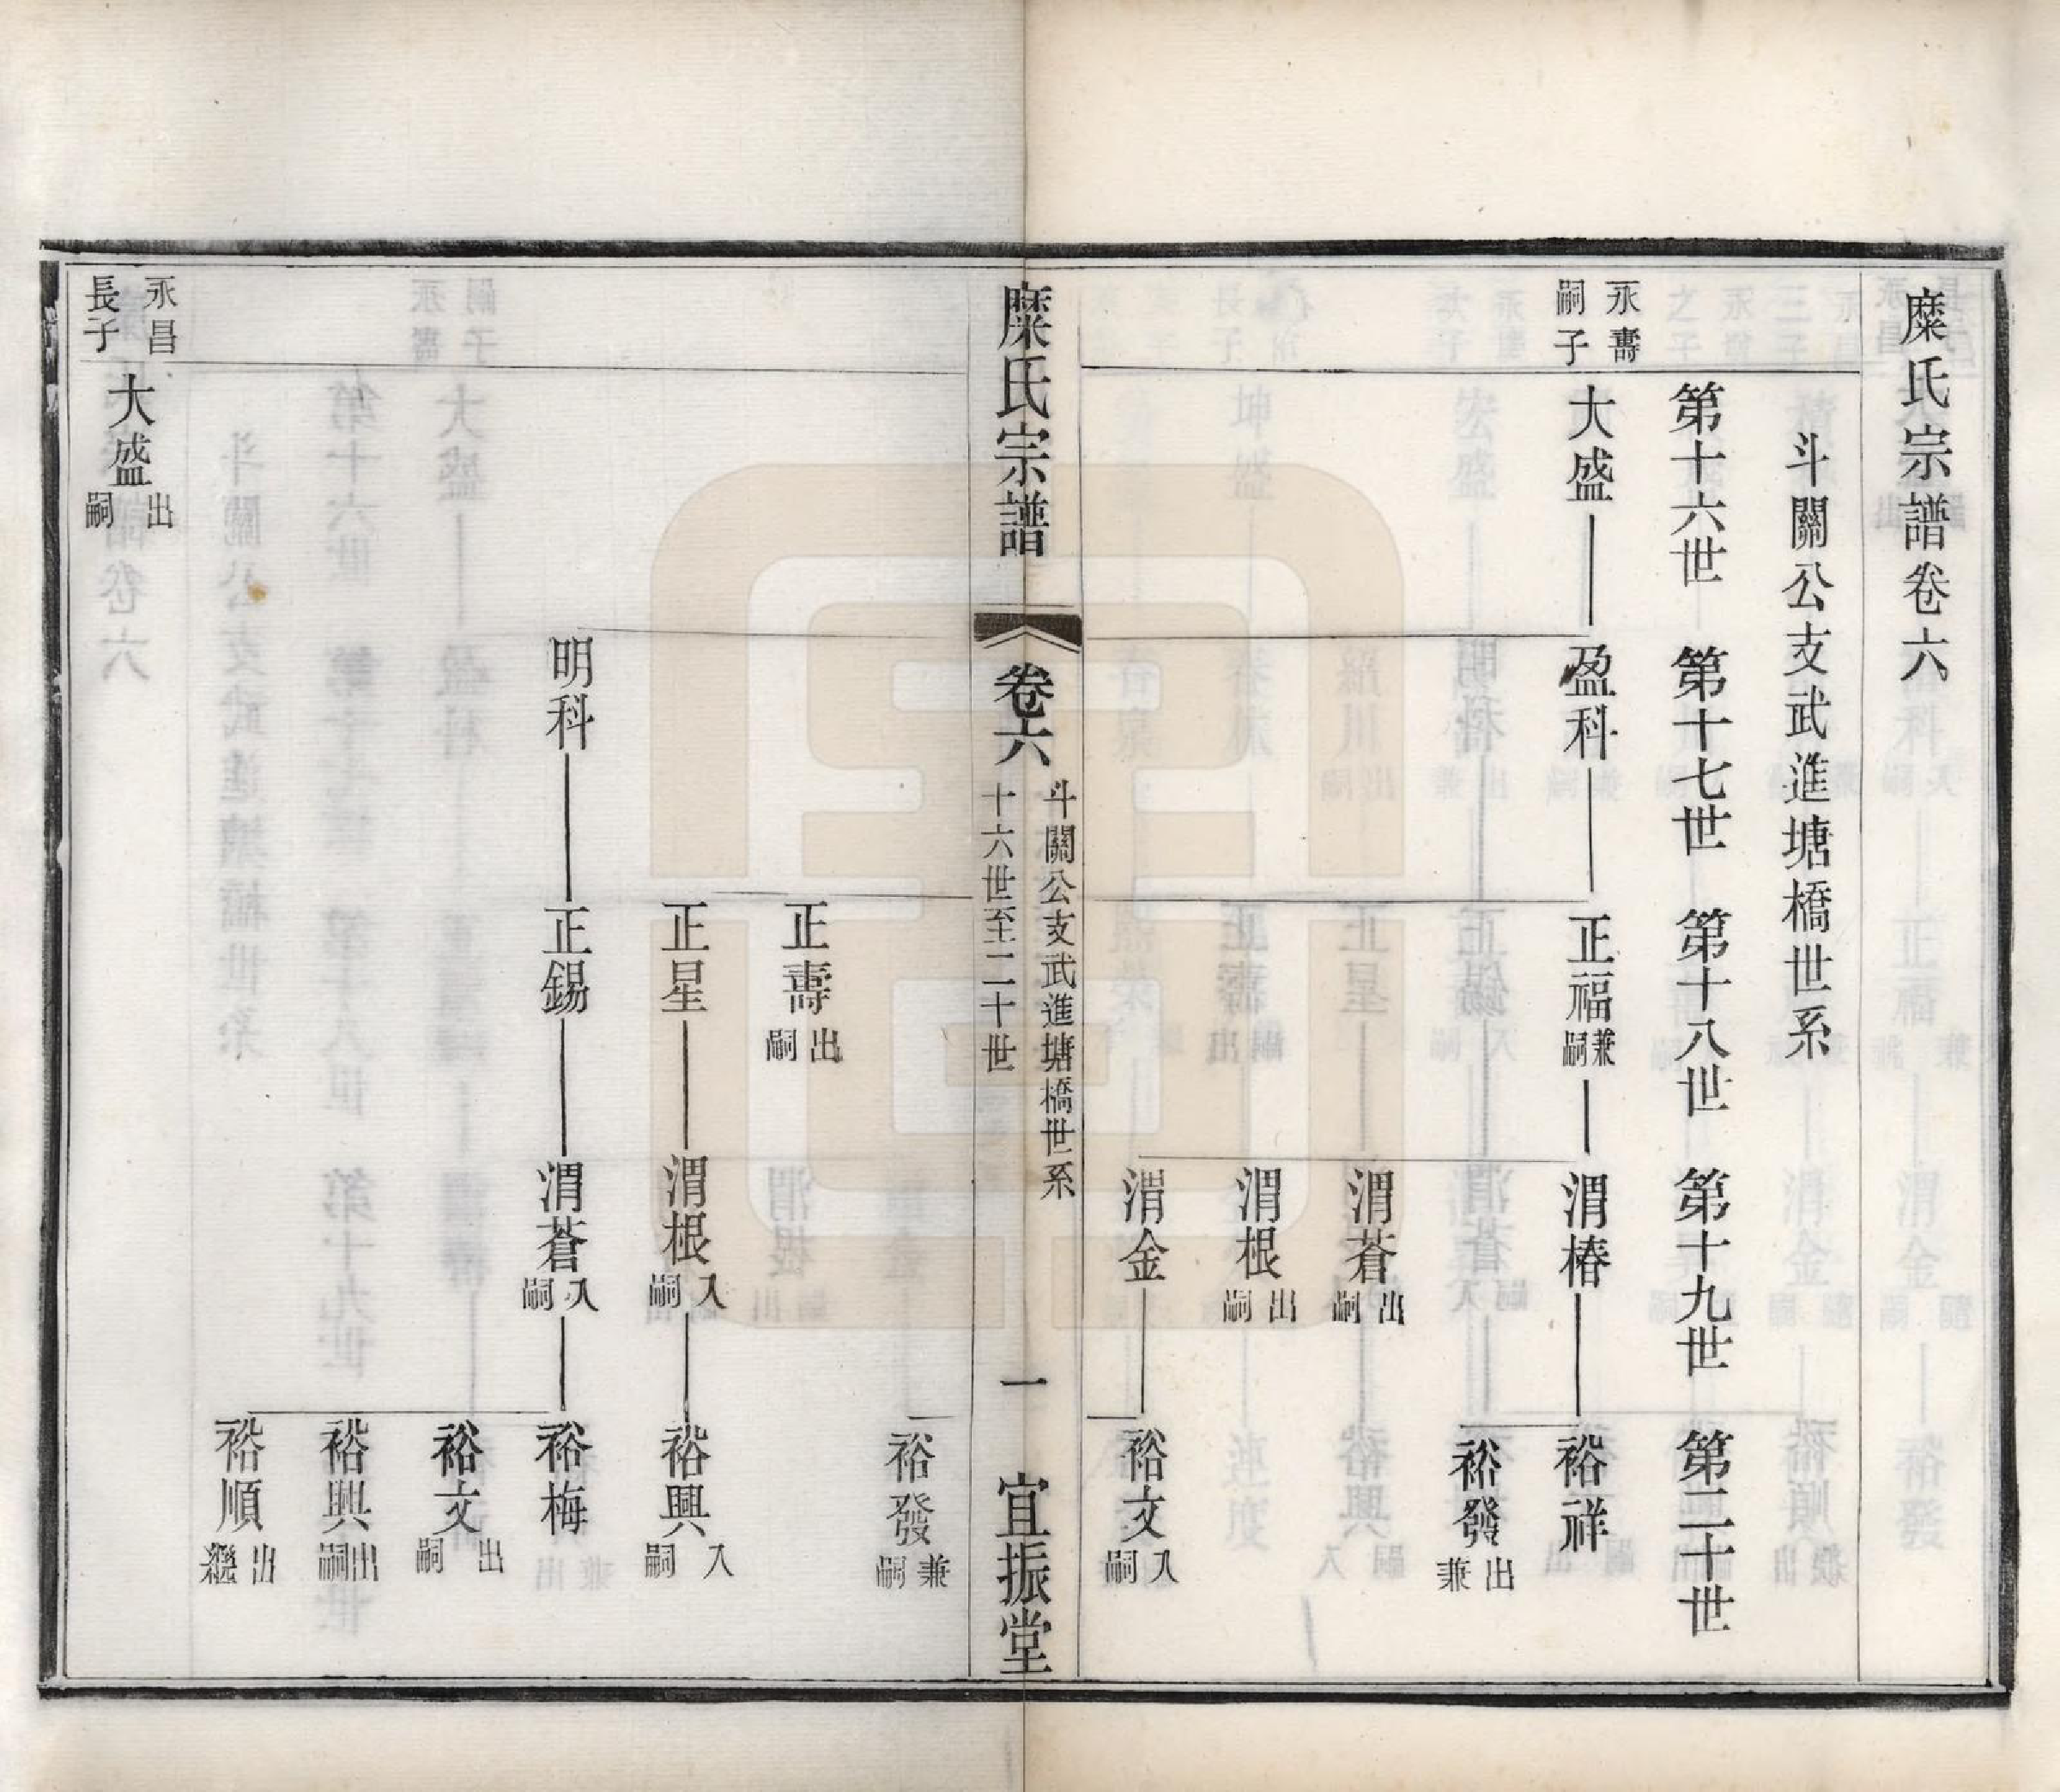 糜氏宗譜卷六
斗關公支武進塘橋世系
第十六世 第十七世 第十八世 第十九世 第二十世
永壽
嗣子
大盛 盈科 正福 兼嗣 渭椿 裕祥
裕發 出兼
渭蒼 出嗣
渭根 出嗣
渭金 裕文 入嗣
糜氏宗譜 卷六 斗關公支武進塘橋世系 十六世至二十世 一 宜振堂
裕發 兼嗣
正壽 出嗣
正星 渭根 入嗣 裕興 入嗣
明科 正錫 渭蒼 入嗣 裕梅
裕文 出嗣
裕興 出嗣
裕順 出繼
永昌
長子
大盛 出嗣